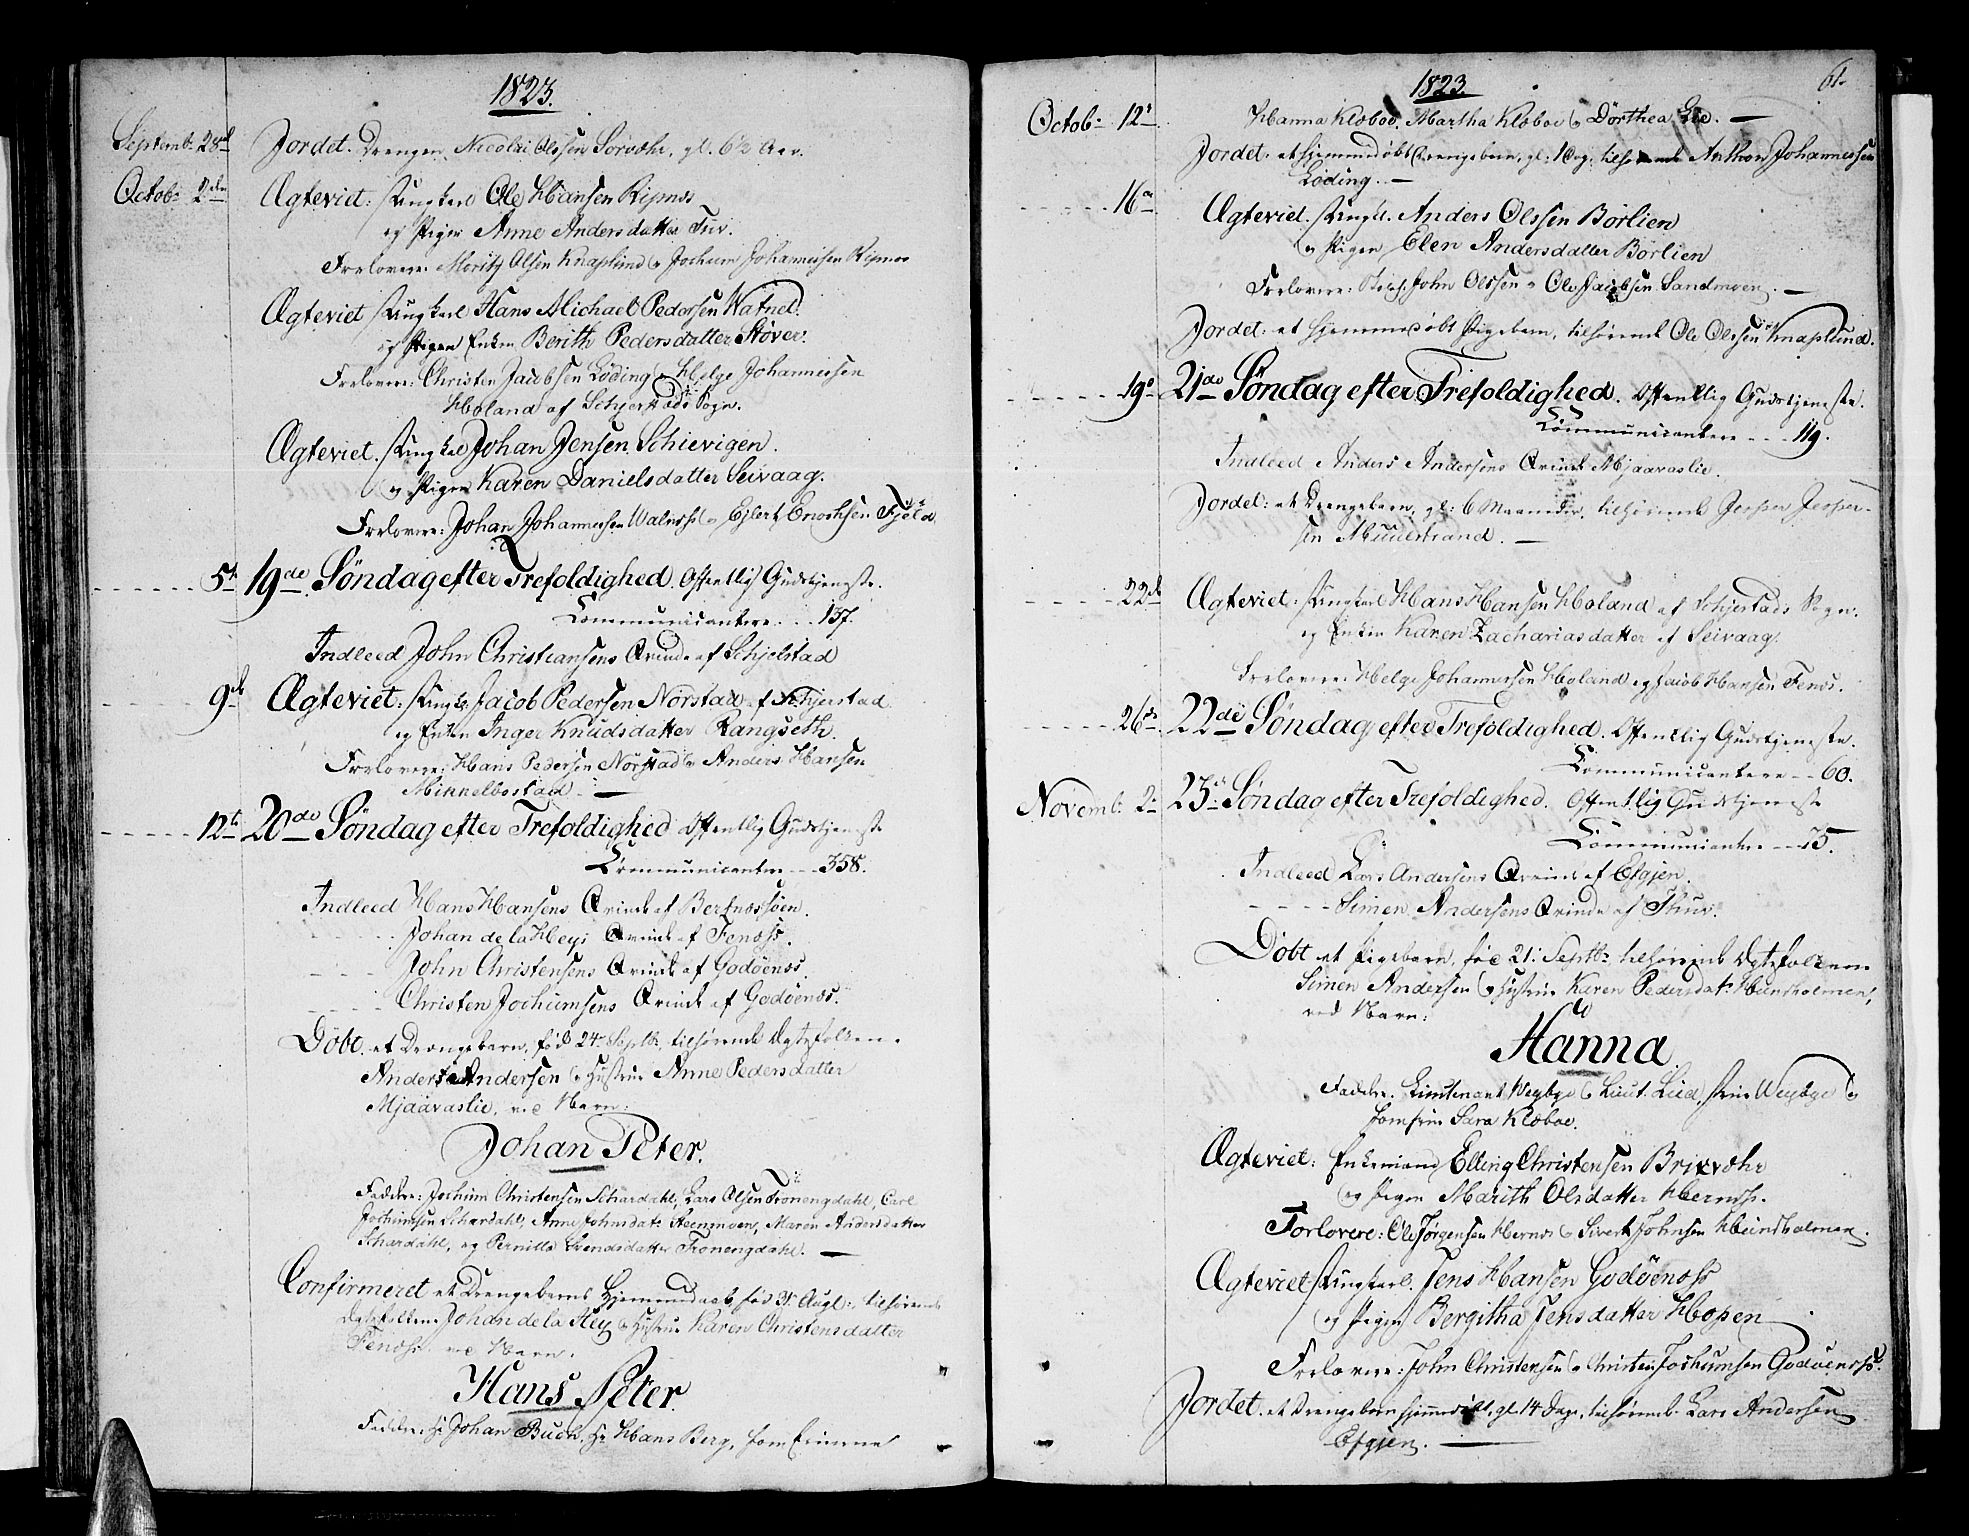 1823.
Septemb: 28de Jordet. Drengen Nicolai Olssen Sörvöhr, gl. 6½ Aar.
Octob: 2den Ægteviet: Ungkarl Ole Hansen Ripnæs
og Pigen Anne Andersdatter Tuv.
Forlovere: Moritz Olsen Knaplund og Jochum Johannessen Ripnæs
Ægteviet Ungkarl Hans Michael Pedersen Watned.
og Enken Berith Pedersdatter Støver.
Forlovere: Christen Jacobsen Löding og Helge Johannessen
Holand af Schjerstads Sogn.
Ægteviet. Ungkarl Johan Jensen Schievigen.
og Pigen Karen Danielsdatter Seivaag.
Forlovere: Johan Johannessen Walnæss og Ejlert Enochsen Fjeld
5te 19de Söndag efter Trefoldighed. Offentlig Gudstjeneste.
Communicantere 137.
Indleed John Christiansens Qvinde af Schjelstad
9de Ægteviet: Ungk. Jacob Pedersen Nörstad af Schjerstad
og Enken Inger Knudsdatter Rangseth.
Forlovere: Hans Pedersen Nörstad og Anders Hansen
Mikkelbostad. —
12te 20de Söndag efter Trefoldighed Offentlig Gudstjeneste
Communicantere 358.
Indleed Hans Hansens Qvinde af Bertnæssöen.
Johan de la Heys Qvinde af Fenæss.
John Christensens Qvinde af Godöenæs.
Christen Jochumsens Qvinde af Godöenæs.
Döbt. et Drengebarn, föd 24 Septbr, tilhörende Ægtefolkene
Anders Andersen og Hustrue Anne Pedersdatter
Mjaavaslie, ved Navn:
Johan Peter.
Faddere: Jochum Christensen Schardahl, Lars Olsen Tronengdahl, Carl
Jochumsen Schardahl, Anne Johnsdatr Steenmoen, Maren Andersdatter
Schardahl, og Pernille Svendsdatter Tronengdahl. —
Confirmeret et Drengebarns Hjemmedaab föd 31 Augt: tilhörende
Ægtefolkene Johan de la Hey og Hustrue Karen Christensdatter
Fenæss. ved Navn.
Hans Peter.
Faddere: Hr Johan Buch, Hr Hans Berg, Jomfruerne
1823. 61.
Octob: 12te Hanna Klæboe, Martha Klæboe og Dorthea Lie. —
Jordet: et hjemmedöbt Drengebarn, gl: 1 Dag, tilhörende Anthon Johannessen
Löding. —
16de Ægteviet. Ungk. Anders Olssen Börlien
og Pigen Elen Andersdatter Börlien
Forlovere: John Olssen og Ole Jacobsen Sandmoen. —
Jordet: et hjemmedöbt Pigebarn, tilhörende Ole Olssen Knaplund.
19de 21de Söndag efter Trefoldighed. Offentlig Gudstjeneste.
Communicantere 119.
Indleed Anders Andersens Qvinde Mjaavaslie.
Jordet: et Drengebarn, gl: 6 Maaneder, tilhörende Jesper Jesper-
sen Muulstrand. —
22de Ægteviet. Ungkarl Hans Hansen Holand af Schjerstads Sogn.
og Enken Karen Zachariasdatter af Seivaag.
Forlovere: Helge Johannessen Holand og Jacob Hansen Fenæs.
26de 22de Söndag efter Trefoldighed. Offentlig Gudstjeneste.
Communicantere 60.
Novemb: 2. 23de Söndag efter Trefoldighed. Offentlig Gudstjeneste
Communicantere 75.
Indleed Lars Andersens Qvinde af Efgjen.
Simen Andersens Qvinde af Thuv.
Döbt et Pigebarn, föd 21. Septbr, tilhörende Ægtefolkene
Simen Andersen og Hustrue Karen Pedersdatr Hundholmen,
ved Navn:
Hanna
Faddere. Lieutenant Weybye og Lieut. Lund, Weybye og
Jomfrue Sara Klæboe.
Ægteviet: Enkemand Elling Christensen Brixvöhr
og Pigen Marith Olsdatter Hernæss.
Forlovere: Ole Jörgensen Hernæs og Sivert Johnsen Hundholmen.
Ægteviet Ungkarl. Jens Hansen Godöenæss
og Pigen Bergitha Jensdatter Hopen
Forlovere: John Christensen og Christen Jochumsen Godöenæss.
Jordet. et Drengebarn hjemmedöbt, gl. 14 Dage, tilhörende Lars Andersen
Efgjen. —